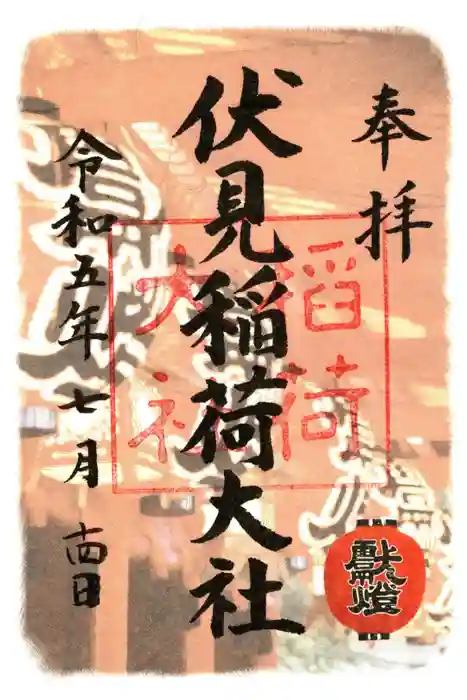 奉拝
伏見稲荷大社
稲荷
大社
令和五年七月十四日
獻燈